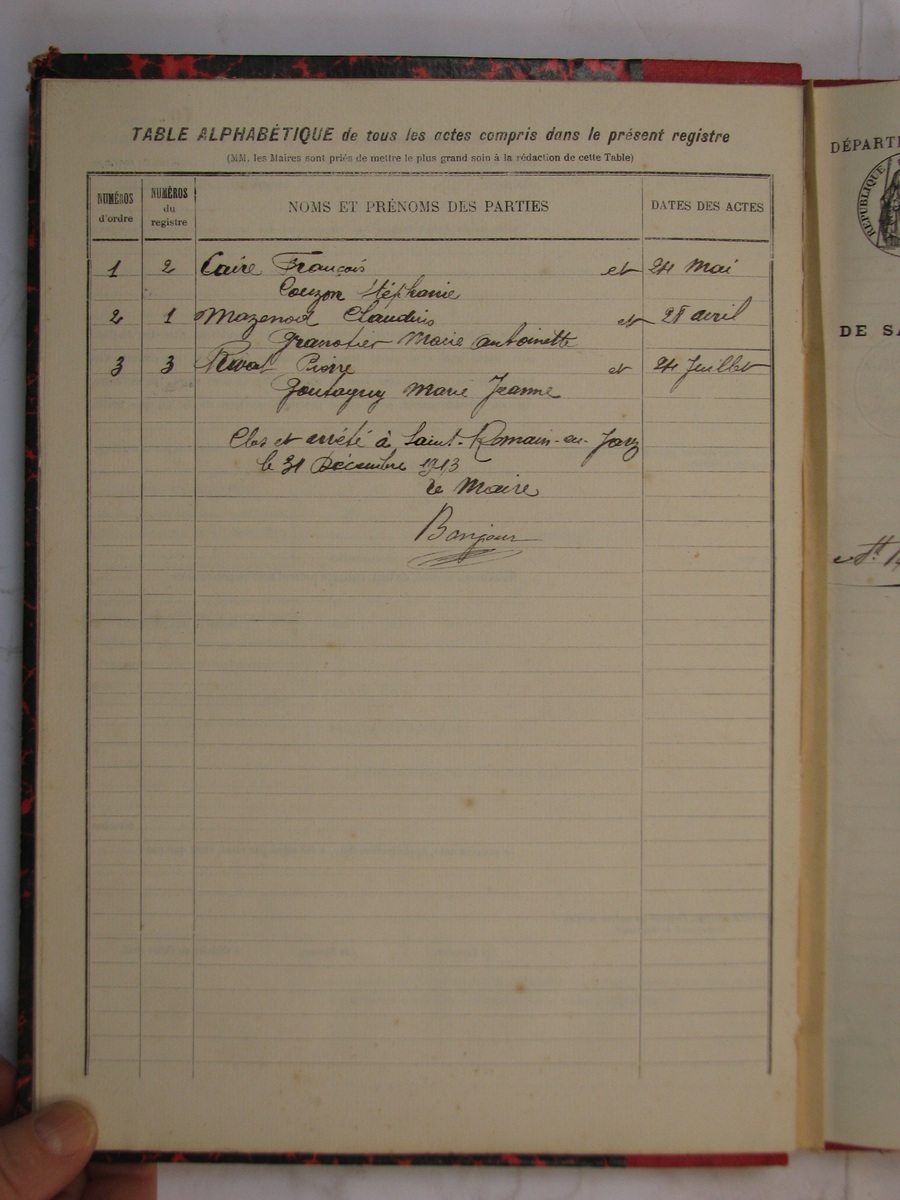 TABLE ALPHABÉTIQUE de tous les actes compris dans le présent registre
(MM. les Maires sont priés de mettre le plus grand soin à la rédaction de cette Table)
NUMÉROS d'ordre NUMÉROS du registre NOMS ET PRÉNOMS DES PARTIES DATES DES ACTES
1 2 Caire François et 24 Mai
Couzon Stéphanie
2 1 Mazenod Claudius et 28 avril
Granotier Marie Antoinette
3 3 Rivat Pierre et 24 Juillet
Goutagny Marie Jeanne
Clos et arrêté à Saint-Romain-en-Jarez
le 31 Décembre 1913
Le Maire
Bonjour
DÉPARTE
RÉPUBLIQUE
DE SA